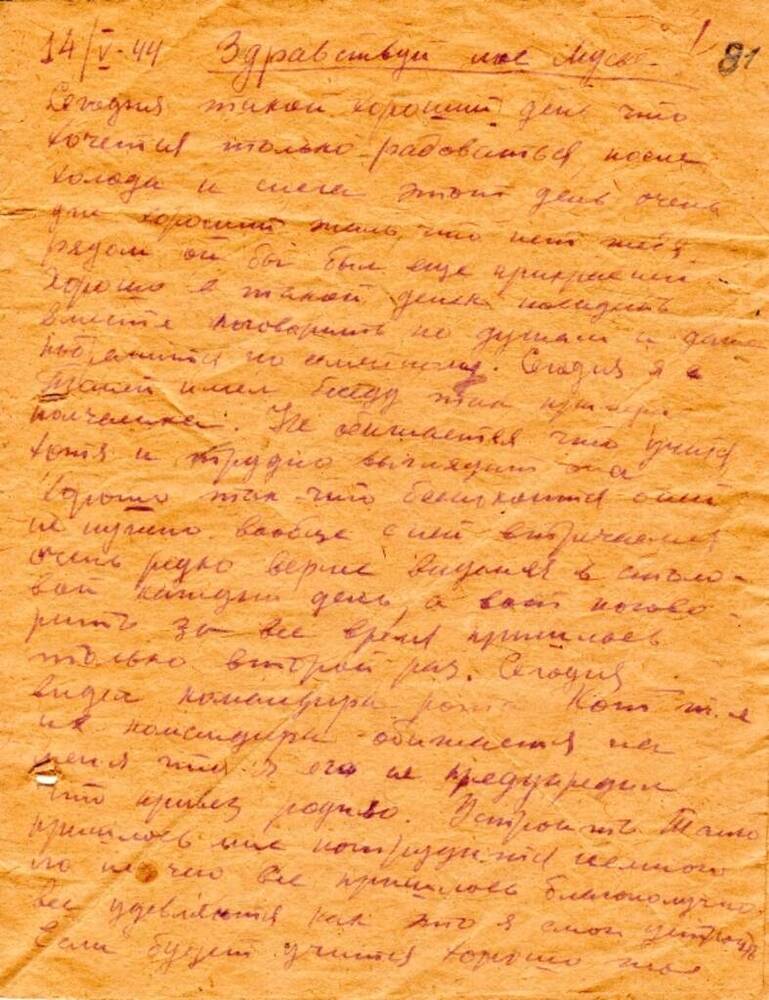 14/V-44 Здравствуй мое Муся! 81
Сегодня такой хороший день что
хочется только радоваться, после
холода и снега этот день очень
хороший жаль что нет тебя
рядом он бы был еще прекрасней
хорошо в такой денек посидеть
вместе поговорить по душам и даже
по семейному. Сегодня я с
Таней имел беседу так примерно
получасика. Не обижается что учится
хотя и трудно выглядит она
хорошо так что беспокоится о ней
не нужно. вообще с ней встречаемся
очень редко верне видемся в столо-
вой каждый день, а вот погово-
рить за все время пришлось
только второй раз. Сегодня
видел командира роты т.е
их командира обижается на
меня что я его не предупредил
что привез родню. Устроить Таню
пришлось мне потрудится немного
но не чего все пришлось благополучно.
все удевляются как это я смог устроить
Если будет учится хорошо